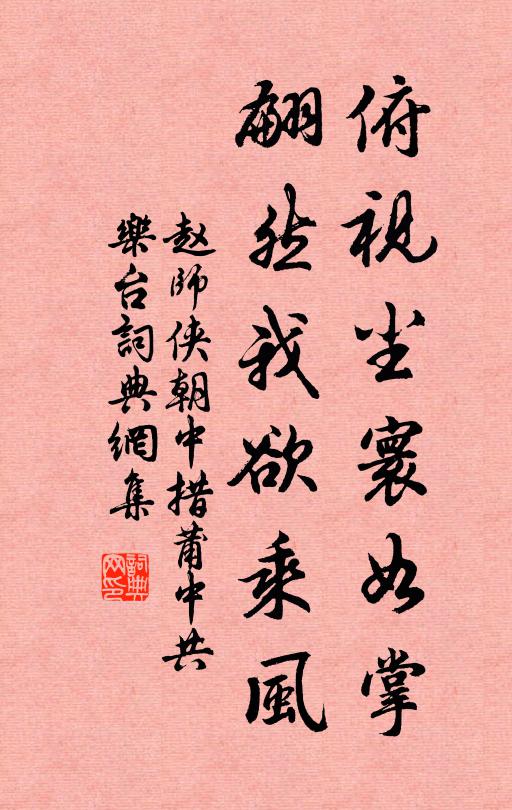 俯視尘寰如掌
翩然我欲乘風
赵師侠朝中措莆中共
樂台詞典網集
詞典
网印